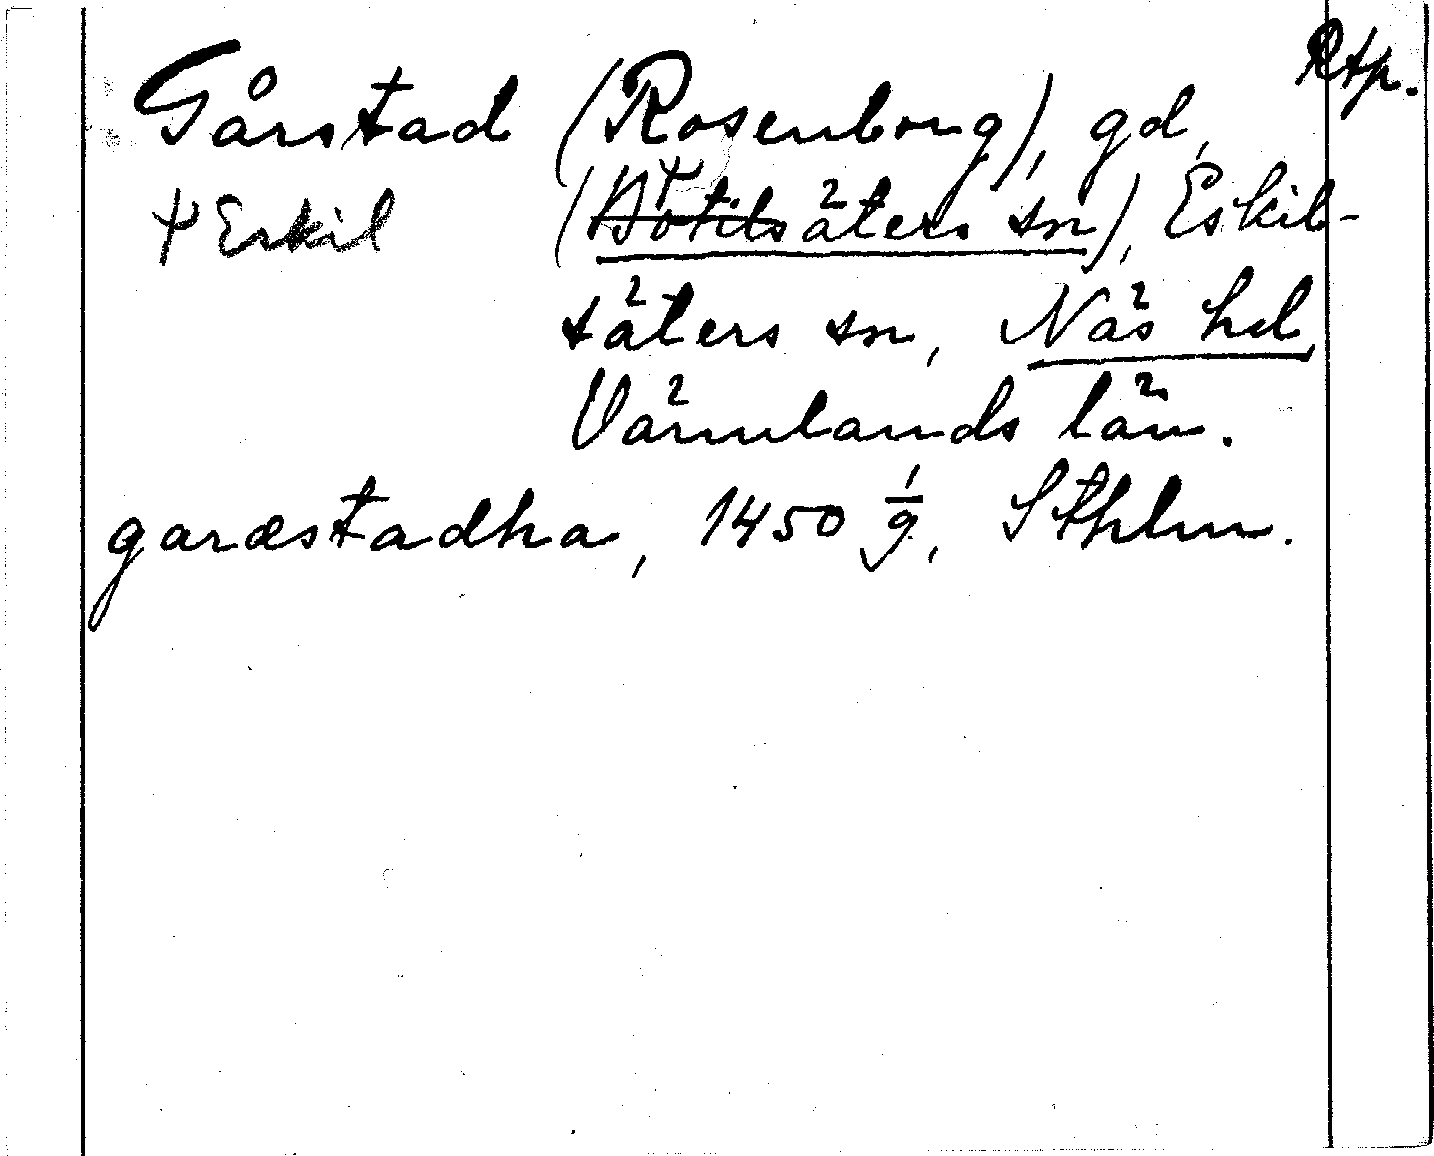 Rtp.
Gårstad (Rosenborg), gd,
+ Eskil (Botilsäters sn), Eskil-
säters sn, Näs hd,
Värmlands län.
garæstadha, 1450 1/9, Sthlm.